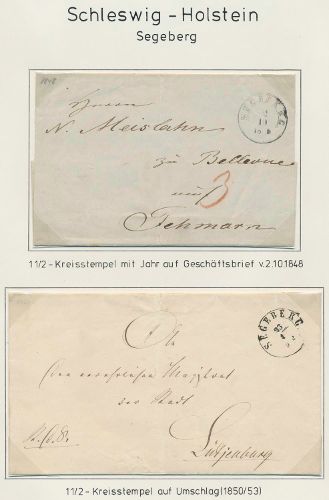 Schleswig-Holstein
Segeberg
1848
Herrn
N. Meislahn
zu Bellevue
auf
3
Fehmarn
SEGEBERG
2
10
11/2-Kreisstempel mit Jahr auf Geschäftsbrief v.2.10.1848
An
den
Magistrat
der Stadt
Lütjenburg
SEGEBERG
11/2-Kreisstempel auf Umschlag(1850/53)